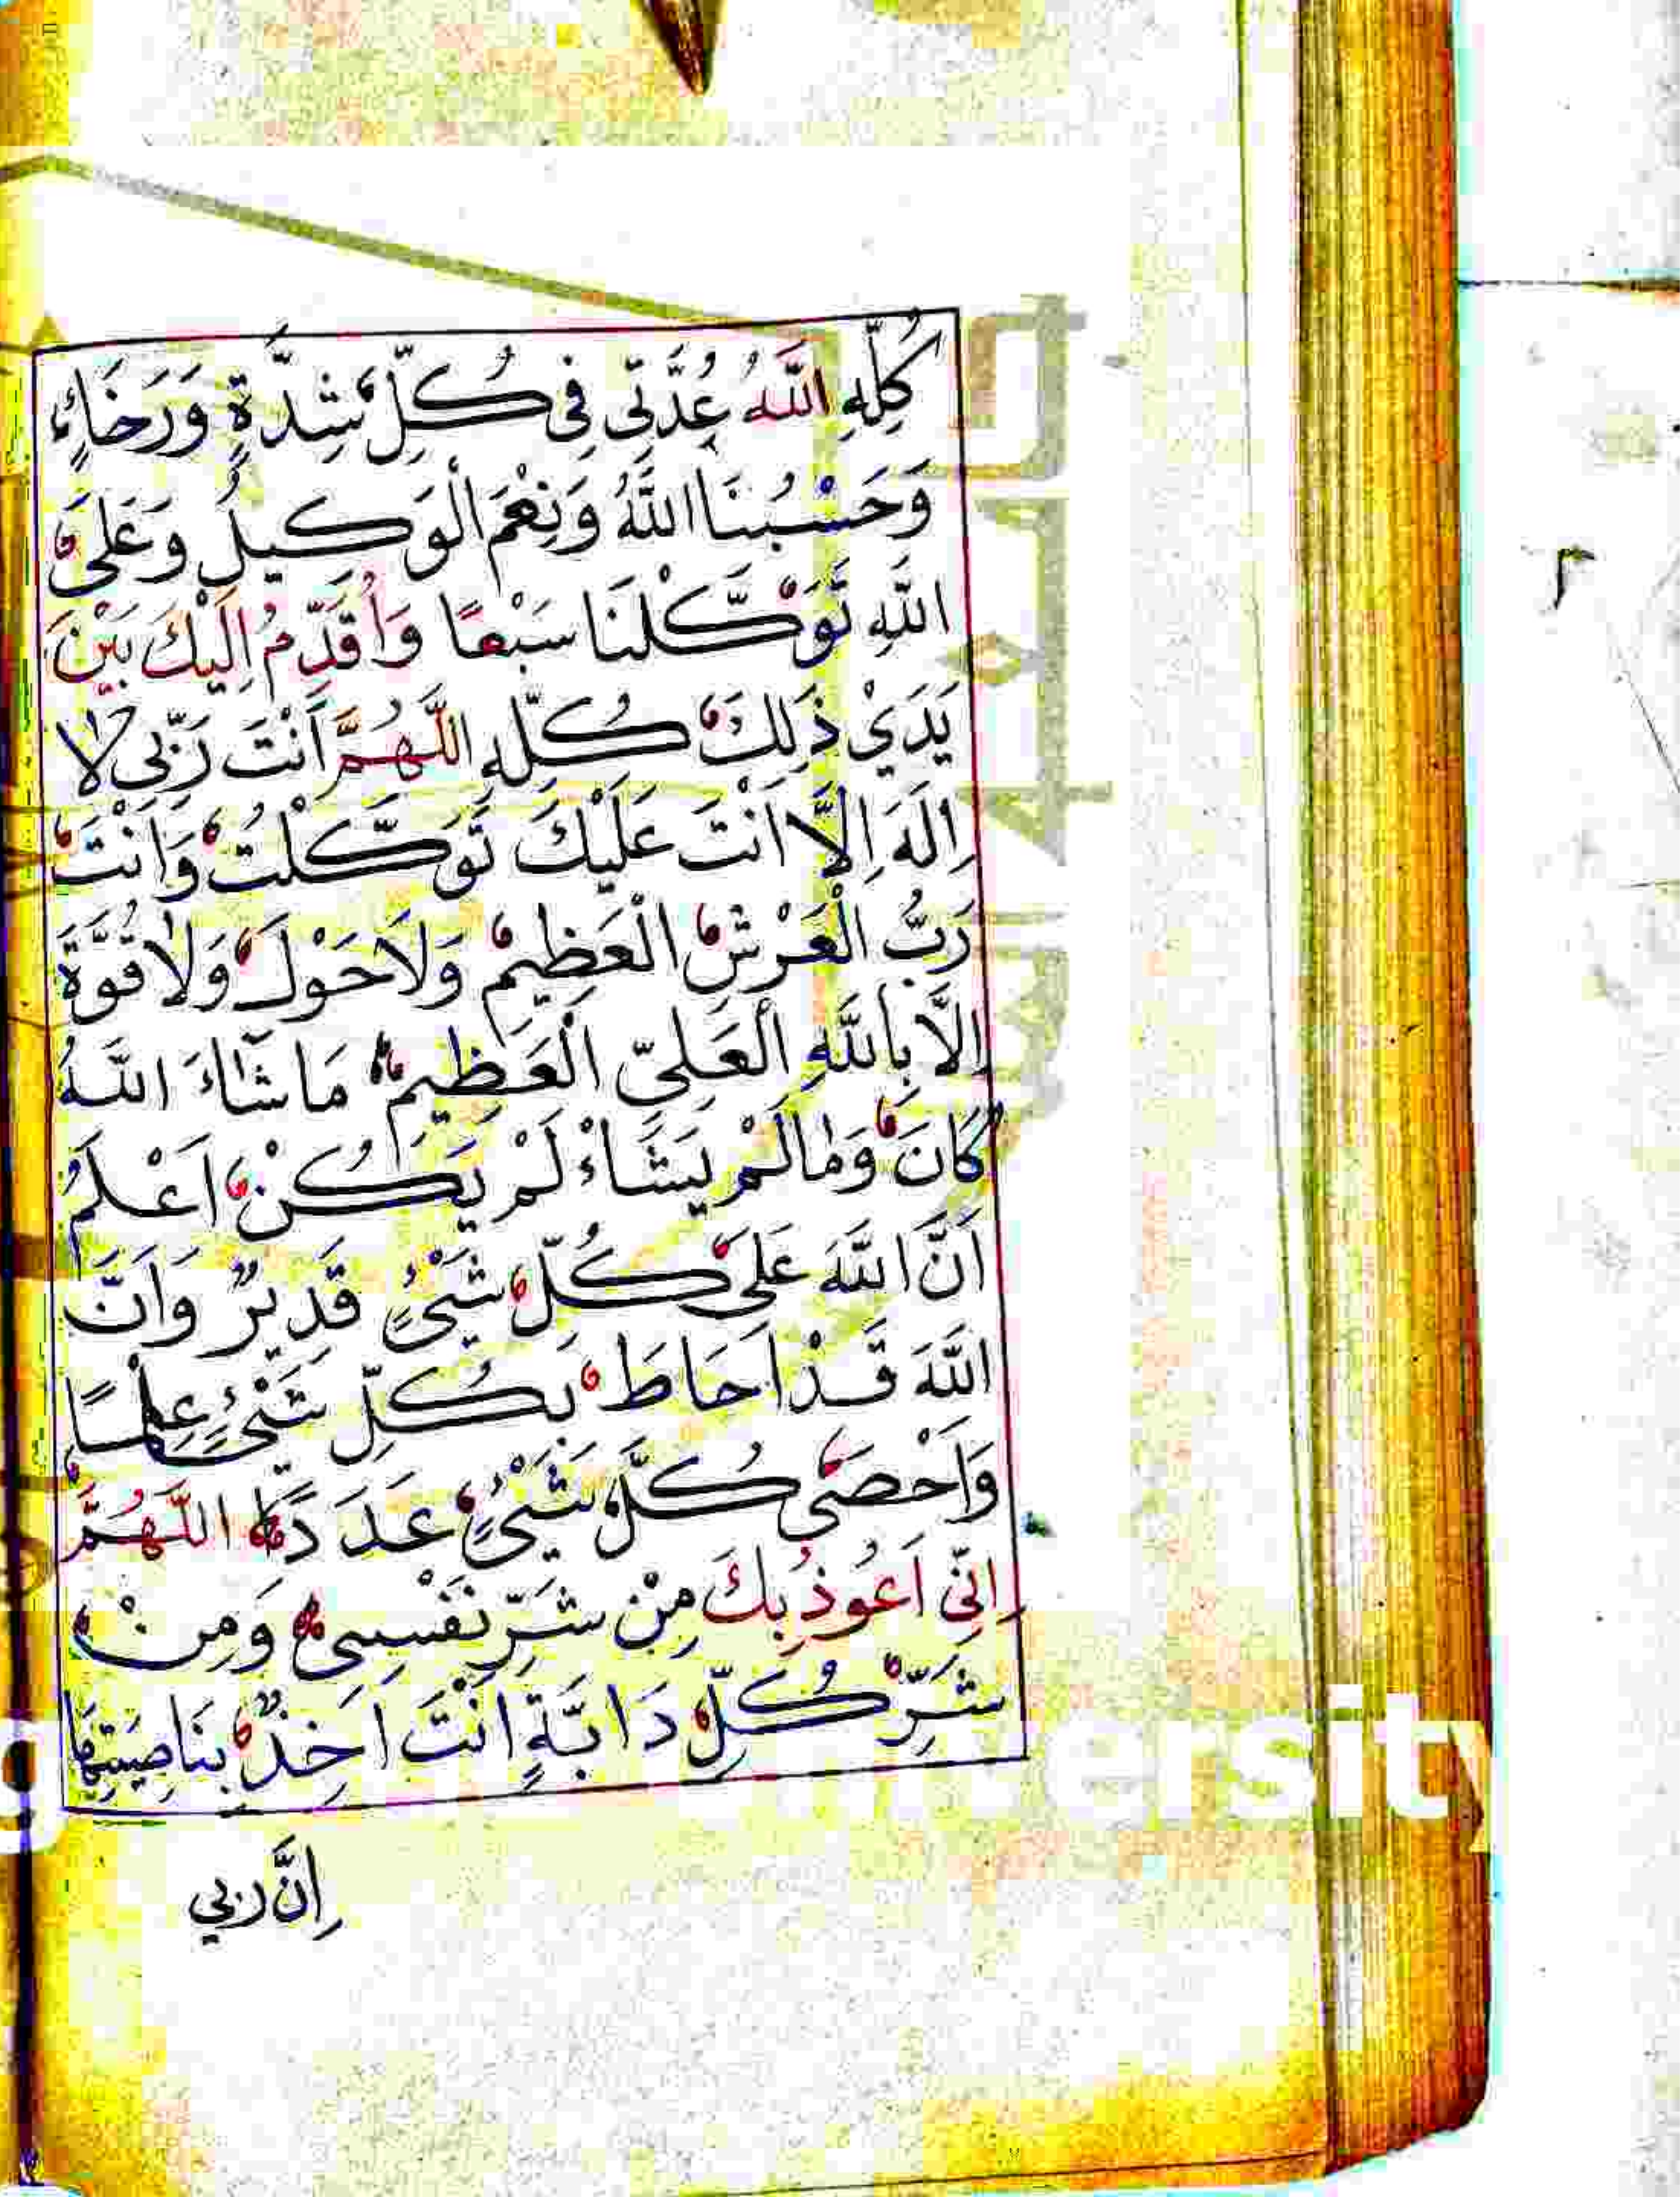 كُلِّهِ اَللّٰهُ عُدَّتِي فِي كُلِّ شِدَّةٍ وَرَخَاءٍ
وَحَسْبُنَا اللّٰهُ وَنِعْمَ الْوَكِيلُ وَعَلَى
اللّٰهِ تَوَكَّلْنَا سَبْعًا وَاُقَدِّمُ اِلَيْكَ بَيْنَ
يَدَيْ ذٰلِكَ كُلِّهِ اَللّٰهُمَّ اَنْتَ رَبِّي لَا
اِلٰهَ اِلَّا اَنْتَ عَلَيْكَ تَوَكَّلْتُ وَاَنْتَ
رَبُّ الْعَرْشِ الْعَظِيمِ وَلَا حَوْلَ وَلَا قُوَّةَ
اِلَّا بِاللّٰهِ الْعَلِيِّ الْعَظِيمِ مَا شَاءَ اللّٰهُ
كَانَ وَمَا لَمْ يَشَاءْ لَمْ يَكُنْ اَعْلَمُ
اَنَّ اللّٰهَ عَلَى كُلِّ شَيْءٍ قَدِيرٌ وَاَنَّ
اللّٰهَ قَدْ اَحَاطَ بِكُلِّ شَيْءٍ عِلْمًا
وَاَحْصَى كُلَّ شَيْءٍ عَدَدًا اَللّٰهُمَّ
اِنِّي اَعُوذُ بِكَ مِنْ شَرِّ نَفْسِي وَمِنْ
شَرِّ كُلِّ دَابَّةٍ اَنْتَ اٰخِذٌ بِنَاصِيَتِهَا
اِنَّ رَبِّي
ersity